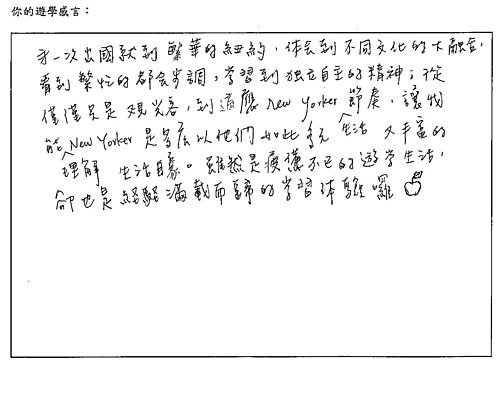 你的遊學感言：
第一次出國就到繁華的紐約，體会到不同文化的大融合，
看到繁忙的都会步調，學習到独立自主的精神；從
僅僅只是觀光客，到適應 new Yorker 節奏，讓我
能 New Yorker 是多麼以他們如此多元生活又丰富的
理解 生活自豪。雖然是疲憊不已的遊学生活，
卻也是經驗滿載而歸的学習体驗囉